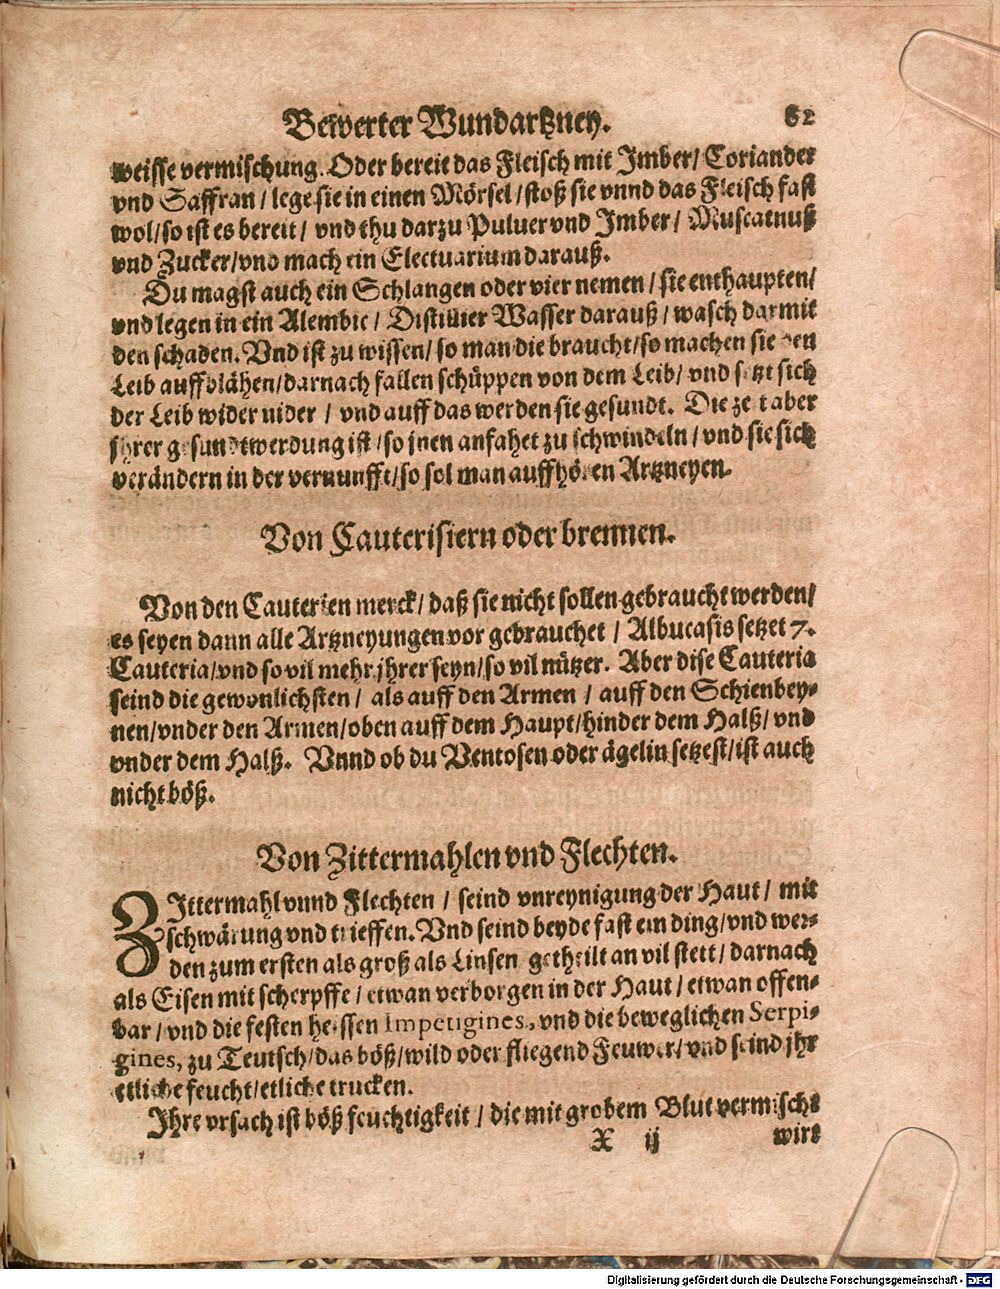 Bewerter Wundartzney. 82
weisse vermischung. Oder bereit das Fleisch mit Imber/ Coriander
vnd Saffran / lege sie in einen Mörsel/ stoß sie vnnd das Fleisch fast
wol/ so ist es bereit / vnd thu darzu Puluer vnd Imber / Muscatnuß
vnd Zucker/ vnd mach ein Electuarium darauß.
Du magst auch ein Schlangen oder vier nemen / sie enthaupten/
vnd legen in ein Alembic / Distillier Wasser darauß / wasch darmit
den schaden. Vnd ist zu wissen/ so man die braucht/ so machen sie den
Leib auffblähen/ darnach fallen schüppen von dem Leib/ vnd setzt sich
der Leib wider nider / vnd auff das werden sie gesundt. Die zeit aber
jhrer gesundtwerdung ist / so jnen anfahet zu schwindeln / vnd sie sich
verändern in der vernunfft/ so sol man auffhören Artzneyen.
Von Cauterisiern oder brennen.
Von den Cauterien merck/ daß sie nicht sollen gebraucht werden/
es seyen dann alle Artzneyungen vor gebrauchet / Albucasis setzet 7.
Cauteria/ vnd so vil mehr jhrer seyn/ so vil nützer. Aber dise Cauteria
seind die gewonlichsten / als auff den Armen / auff den Schienbey-
nen/ vnder den Armen/ oben auff dem Haupt/ hinder dem Halß/ vnd
vnder dem Halß. Vnnd ob du Ventosen oder ägelin setzest/ ist auch
nicht böß.
Von Zittermahlen vnd Flechten.
ZIttermahl vnnd Flechten / seind vnreynigung der Haut / mit
schwärung vnd trieffen. Vnd seind beyde fast ein ding/ vnd wer-
den zum ersten als groß als Linsen getheilt an vil stett / darnach
als Eisen mit scherpffe / etwan verborgen in der Haut / etwan offen-
bar / vnd die festen heissen Impetigines, vnd die beweglichen Serpi-
gines, zu Teutsch/ das böß/ wild oder fliegend Feuwer/ vnd seind jhr
etliche feucht/ etliche trucken.
Ihre vrsach ist böß feuchtigkeit / die mit grobem Blut vermischt
X ij wirt
Digitalisierung gefördert durch die Deutsche Forschungsgemeinschaft - DFG